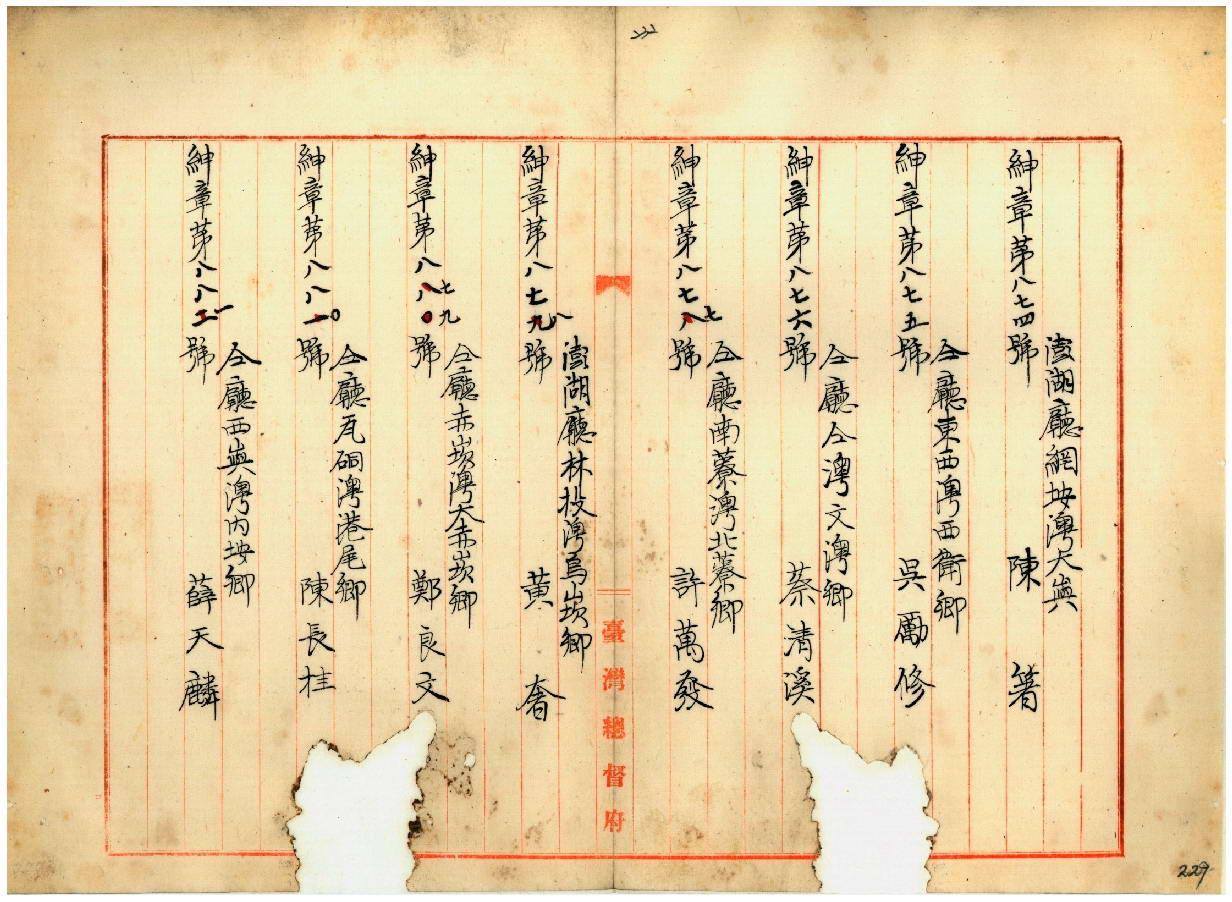 紳章第八七四號
澎湖廳網垵澳大嶼
陳箸
紳章第八七五號
仝廳東西澳西衛鄉
吳勵修
紳章第八七六號
仝廳仝澳文澳鄉
蔡清溪
紳章第八七七號
仝廳南藔澳北藔鄉
許萬發
臺灣總督府
紳章第八七八號
澎湖廳林投澳烏崁鄉
黃奢
紳章第八七九號
仝廳赤崁澳大赤崁鄉
鄭良文
紳章第八八〇號
仝廳瓦硐澳港尾鄉
陳長桂
紳章第八八一號
仝廳西嶼澳內垵鄉
薛天麟
229